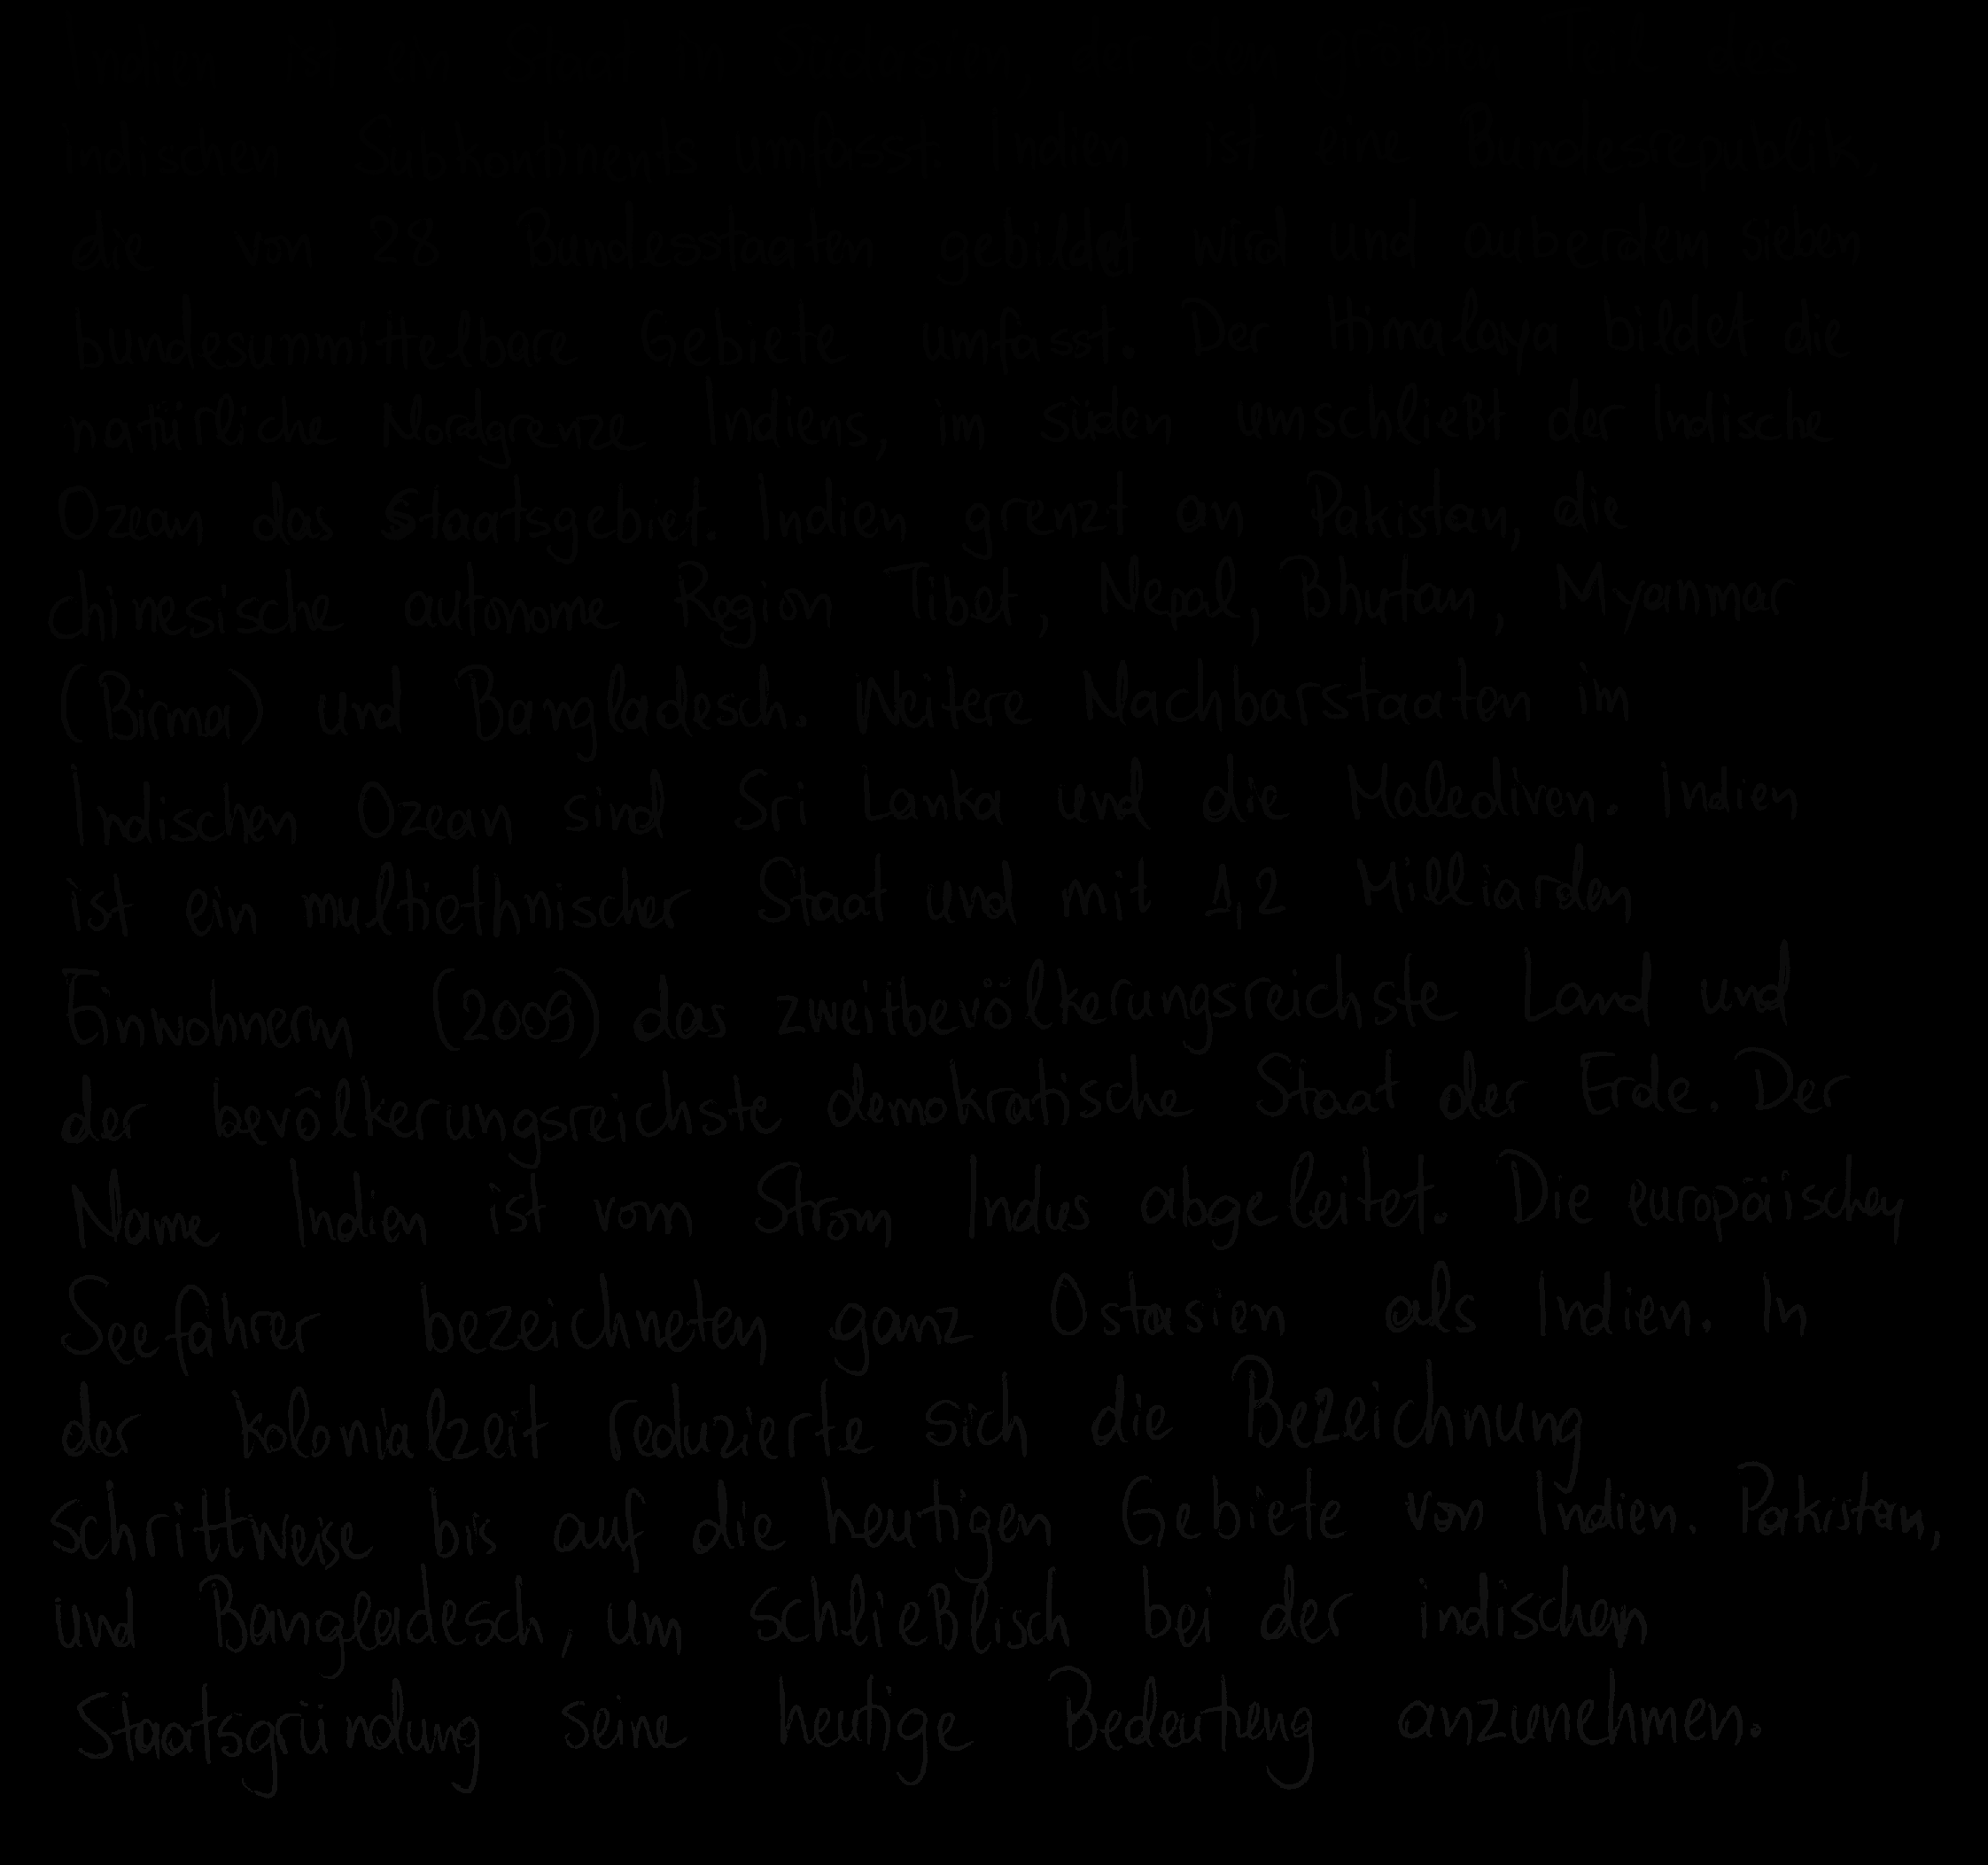 Indien ist ein Staat in Südasien, der den größten Teil des
indischen Subkontinents umfasst. Indien ist eine Bundesrepublik,
die von 28 Bundesstaaten gebildet wird und außerdem sieben
bundesunmittelbare Gebiete umfasst. Der Himalaya bildet die
natürliche Nordgrenze Indiens, im süden umschließt der Indische
Ozean das Staatsgebiet. Indien grenzt an Pakistan, die
chinesische autonome Region Tibet, Nepal, Bhutan, Myanmar
(Birma) und Bangladesch. Weitere Nachbarstaaten im
Indischen Ozean sind Sri Lanka und die Malediven. Indien
ist ein multiethnischer Staat und mit 1,2 Milliarden
Einwohnern (2009) das zweitbevölkerungsreichste Land und
der bevölkerungsreichste demokratische Staat der Erde. Der
Name Indien ist vom Strom Indus abgeleitet. Die europäischen
Seefahrer bezeichneten ganz Ostasien als Indien. In
der Kolonialzeit reduzierte sich die Bezeichnung
schrittweise bis auf die heutigen Gebiete von Indien. Pakistan,
und Bangladesch, um schließlisch bei der indischen
Staatsgründung seine heutige Bedeutung anzunehmen.